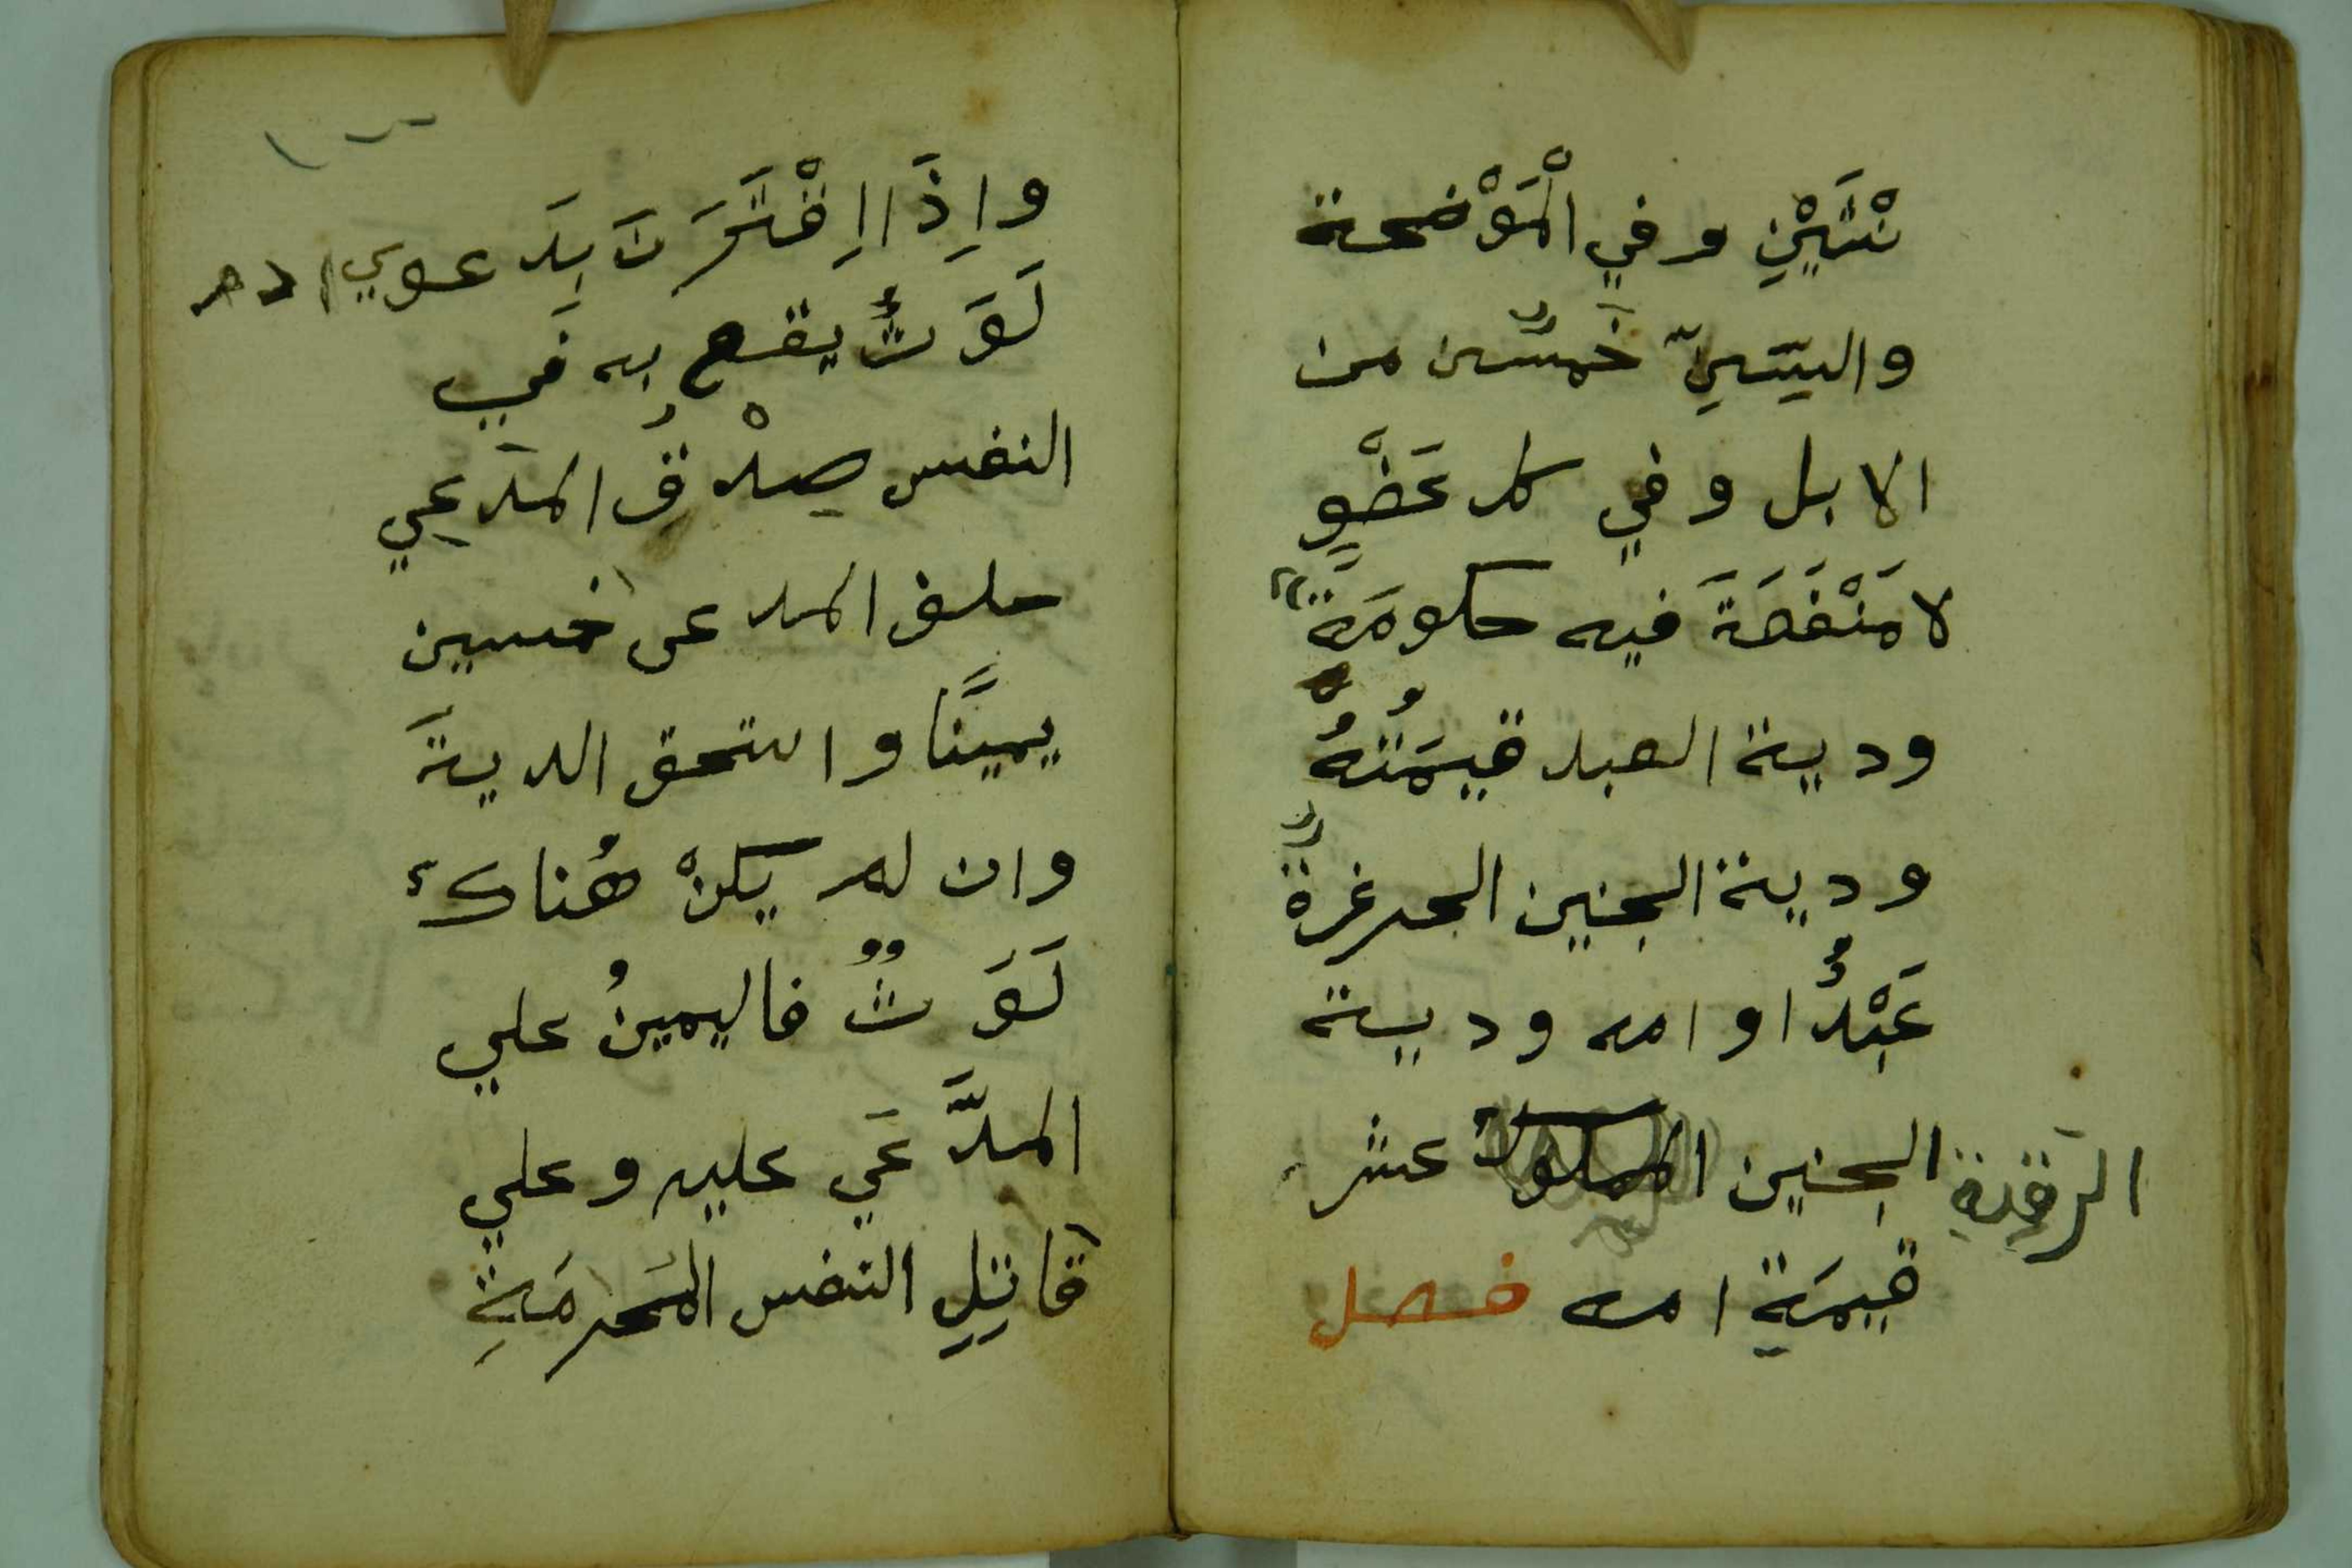 نْثَيَيْنِ وفي الْمَوْضحة
والسِنِّ خَمسٌ من
الابل وفي كل عَضْوٍ
لا مَنْفَعَةَ فيه حكومَةٌ
ودية العبد قيمَتُهُ
ودية الجنين الحر غرةٌ
عَبْدٌ او امه ودية
الجنين المملوك عشر
الرقيق
قيمَةِ امه فصل
واِذَا اِقْتَرَنَ بِدَعوي ادم
لَوَثٌ يقع به في
النفس صِدْقُ المدَعِي
حلف المدعى خمسين
يمينًا واستحق الديةَ
وان لم يكنْ هُناكَ
لَوَثٌ فاليمينُ علي
المدَّعَي عليه وعلي
قاتِلِ النفس المَحرمَةِ